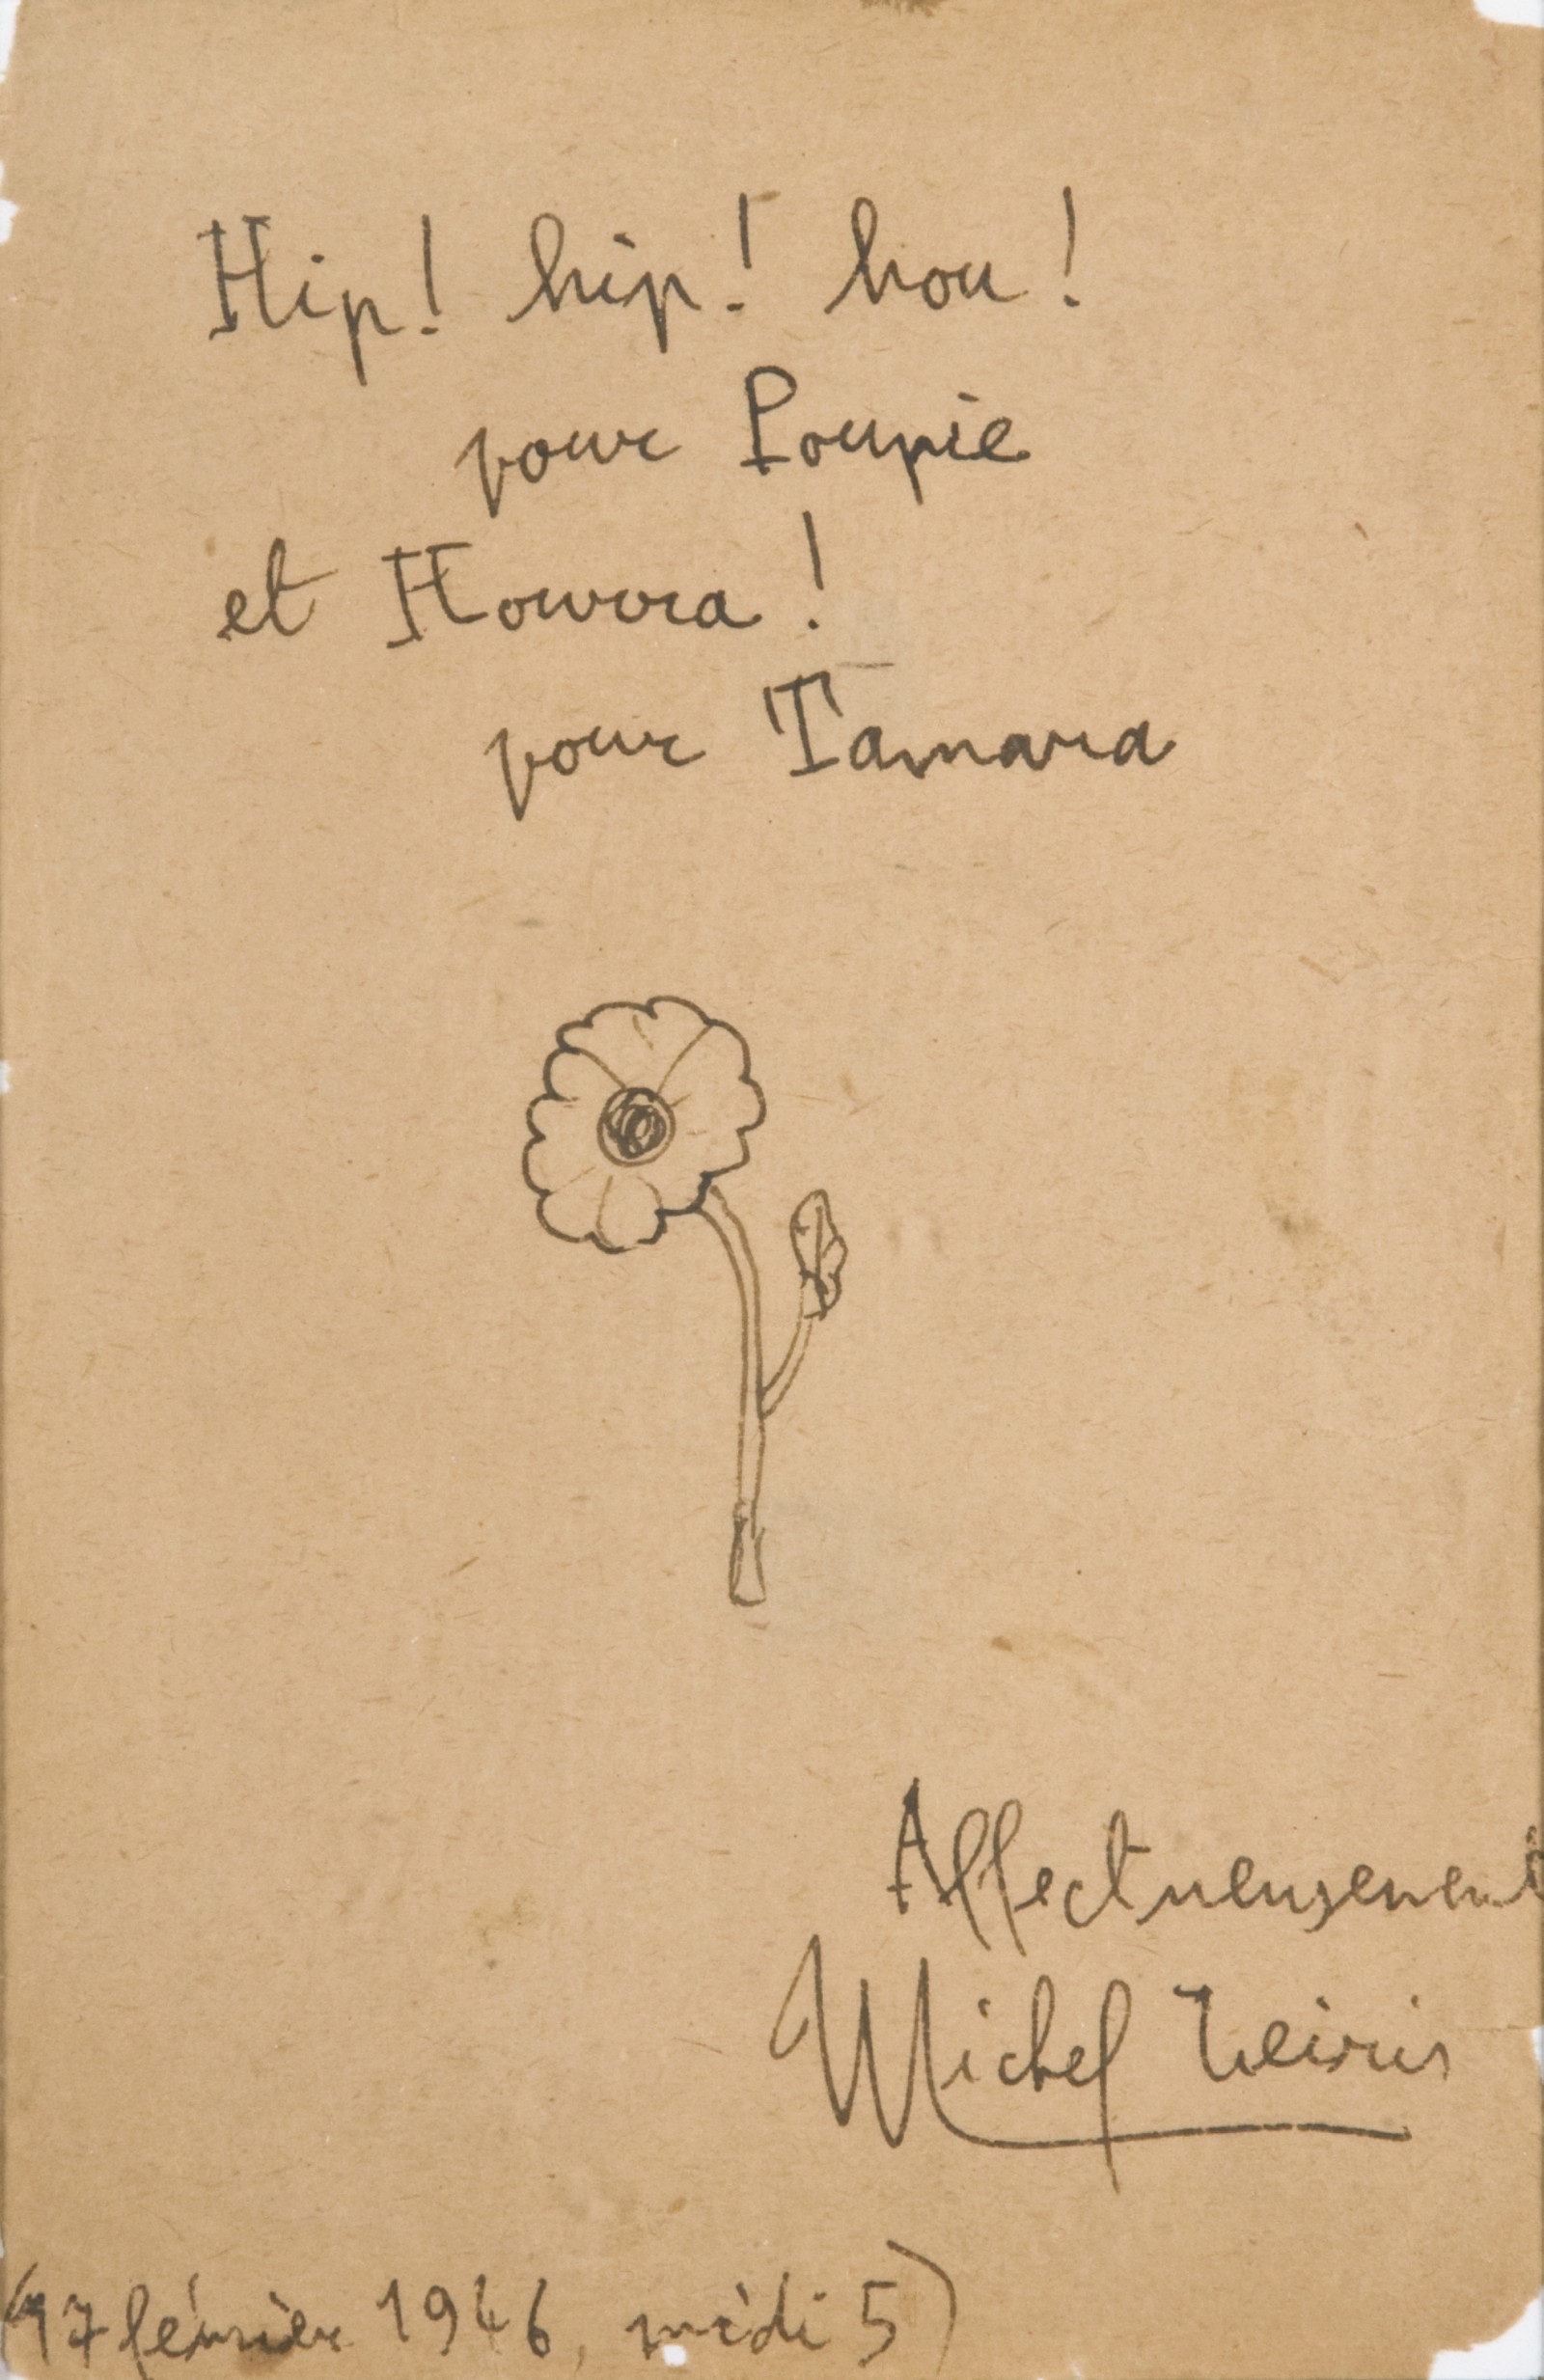 Hip! hip! hou!
pour Poupie
et Hourra!
pour Tamara
Affectueusement
Michel Leiris
(17 février 1946, midi 5)